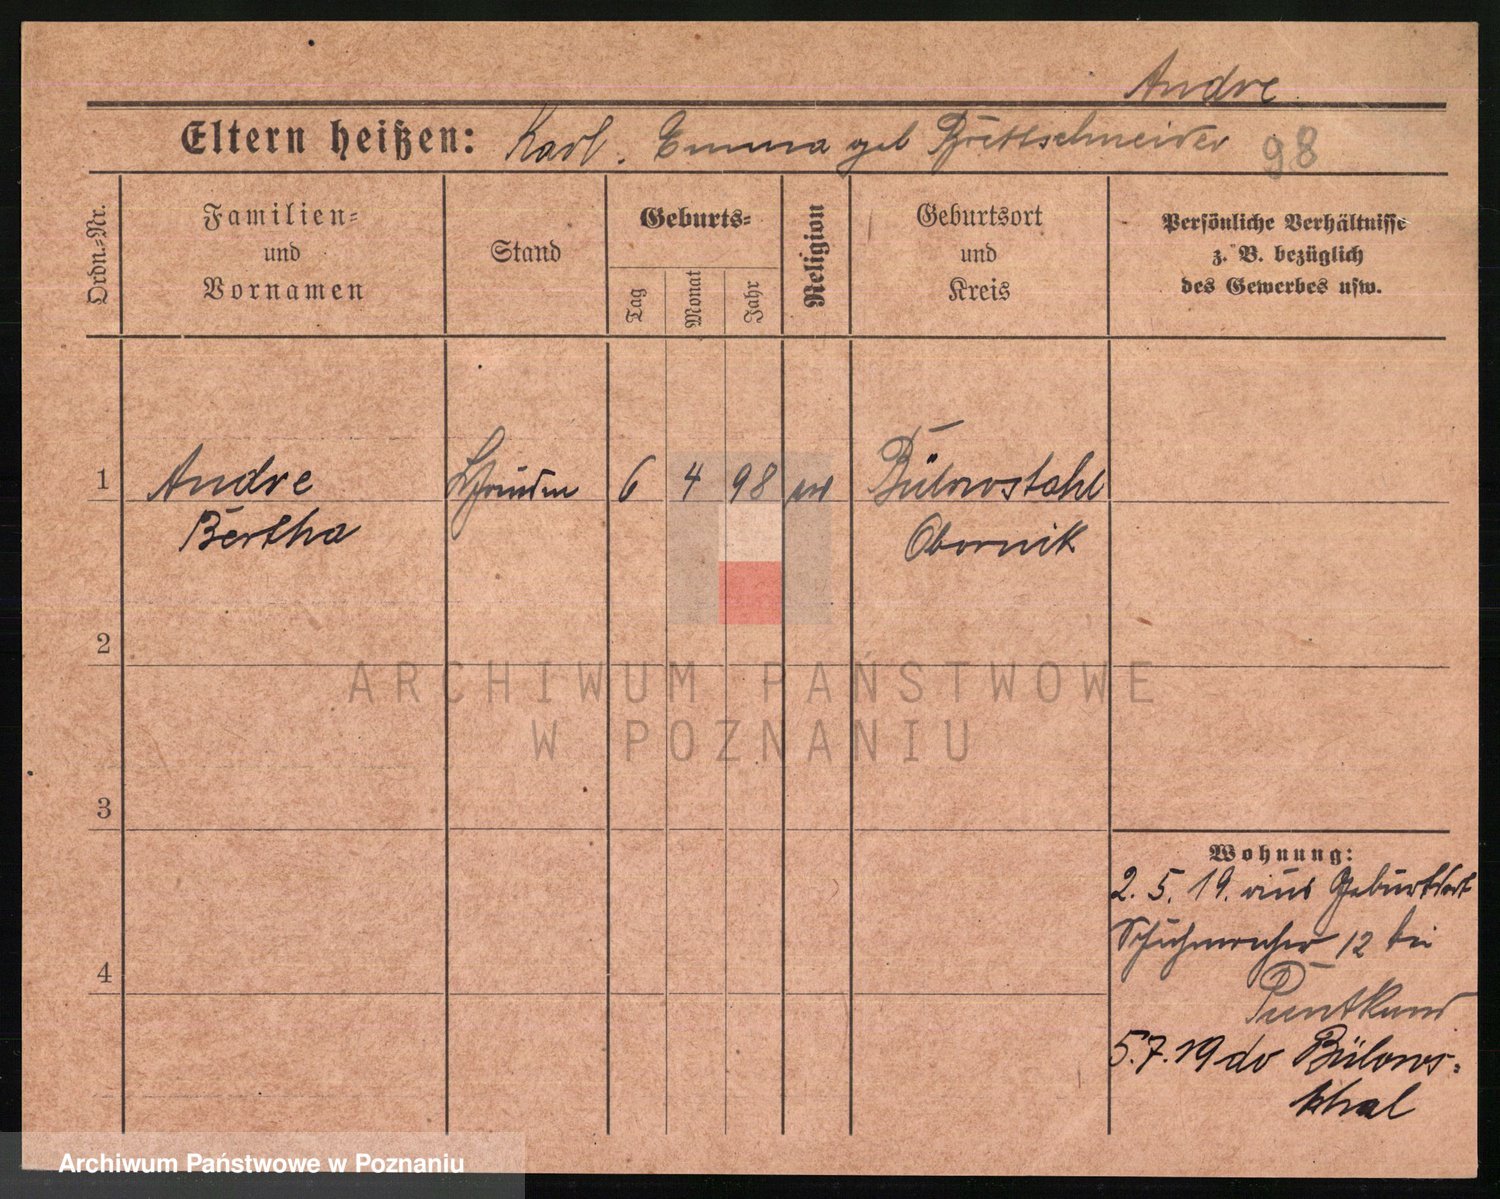 Andre
Eltern heißen: Karl. Emma geb Brettschneider 98
Ordn.-Nr.
Familien-
und
Vornamen
Stand
Geburts-
Tag
Monat
Jahr
Religion
Geburtsort
und
Kreis
Persönliche Verhältnisse
z. B. bezüglich
des Gewerbes usw.
1 Andre 6 4 98 ev Bülowstahl
Bertha Obornik
2
3
4
Wohnung:
2. 5. 19. aus Geburtsort
Schuhmacher 12 bei
5.7.19 do Bülows-
thal
ARCHIWUM PAŃSTWOWE
W POZNANIU
Archiwum Państwowe w Poznaniu